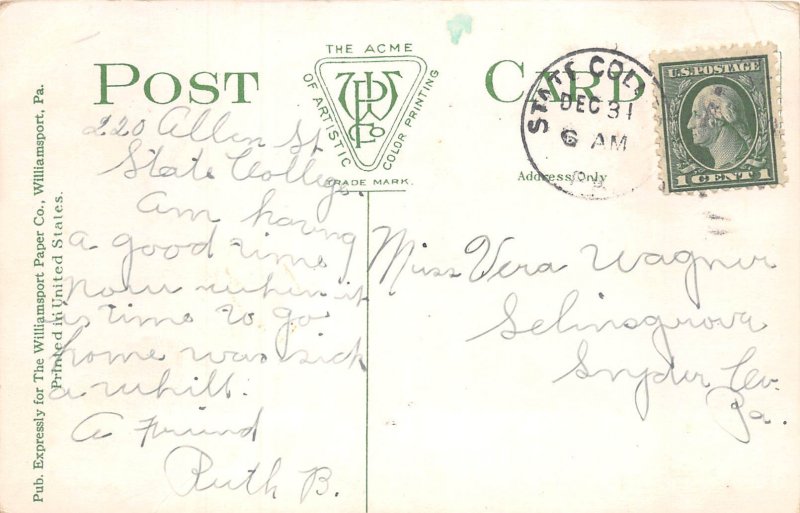 POST CARD
THE ACME
OF ARTISTIC
COLOR PRINTING
WPCo
TRADE MARK.
Address Only
STATE COLL
DEC 31
6 AM
U.S. POSTAGE
1 CENT 1
Pub. Expressly for The Williamsport Paper Co., Williamsport, Pa.
Printed in United States.
220 Allen St
State College.
Am having
a good time
now when it
is time to go
home was sick
a whill.
A Friend
Ruth B.
Miss Vera Wagner
Selinsgrova
Snyder Co.
Pa.